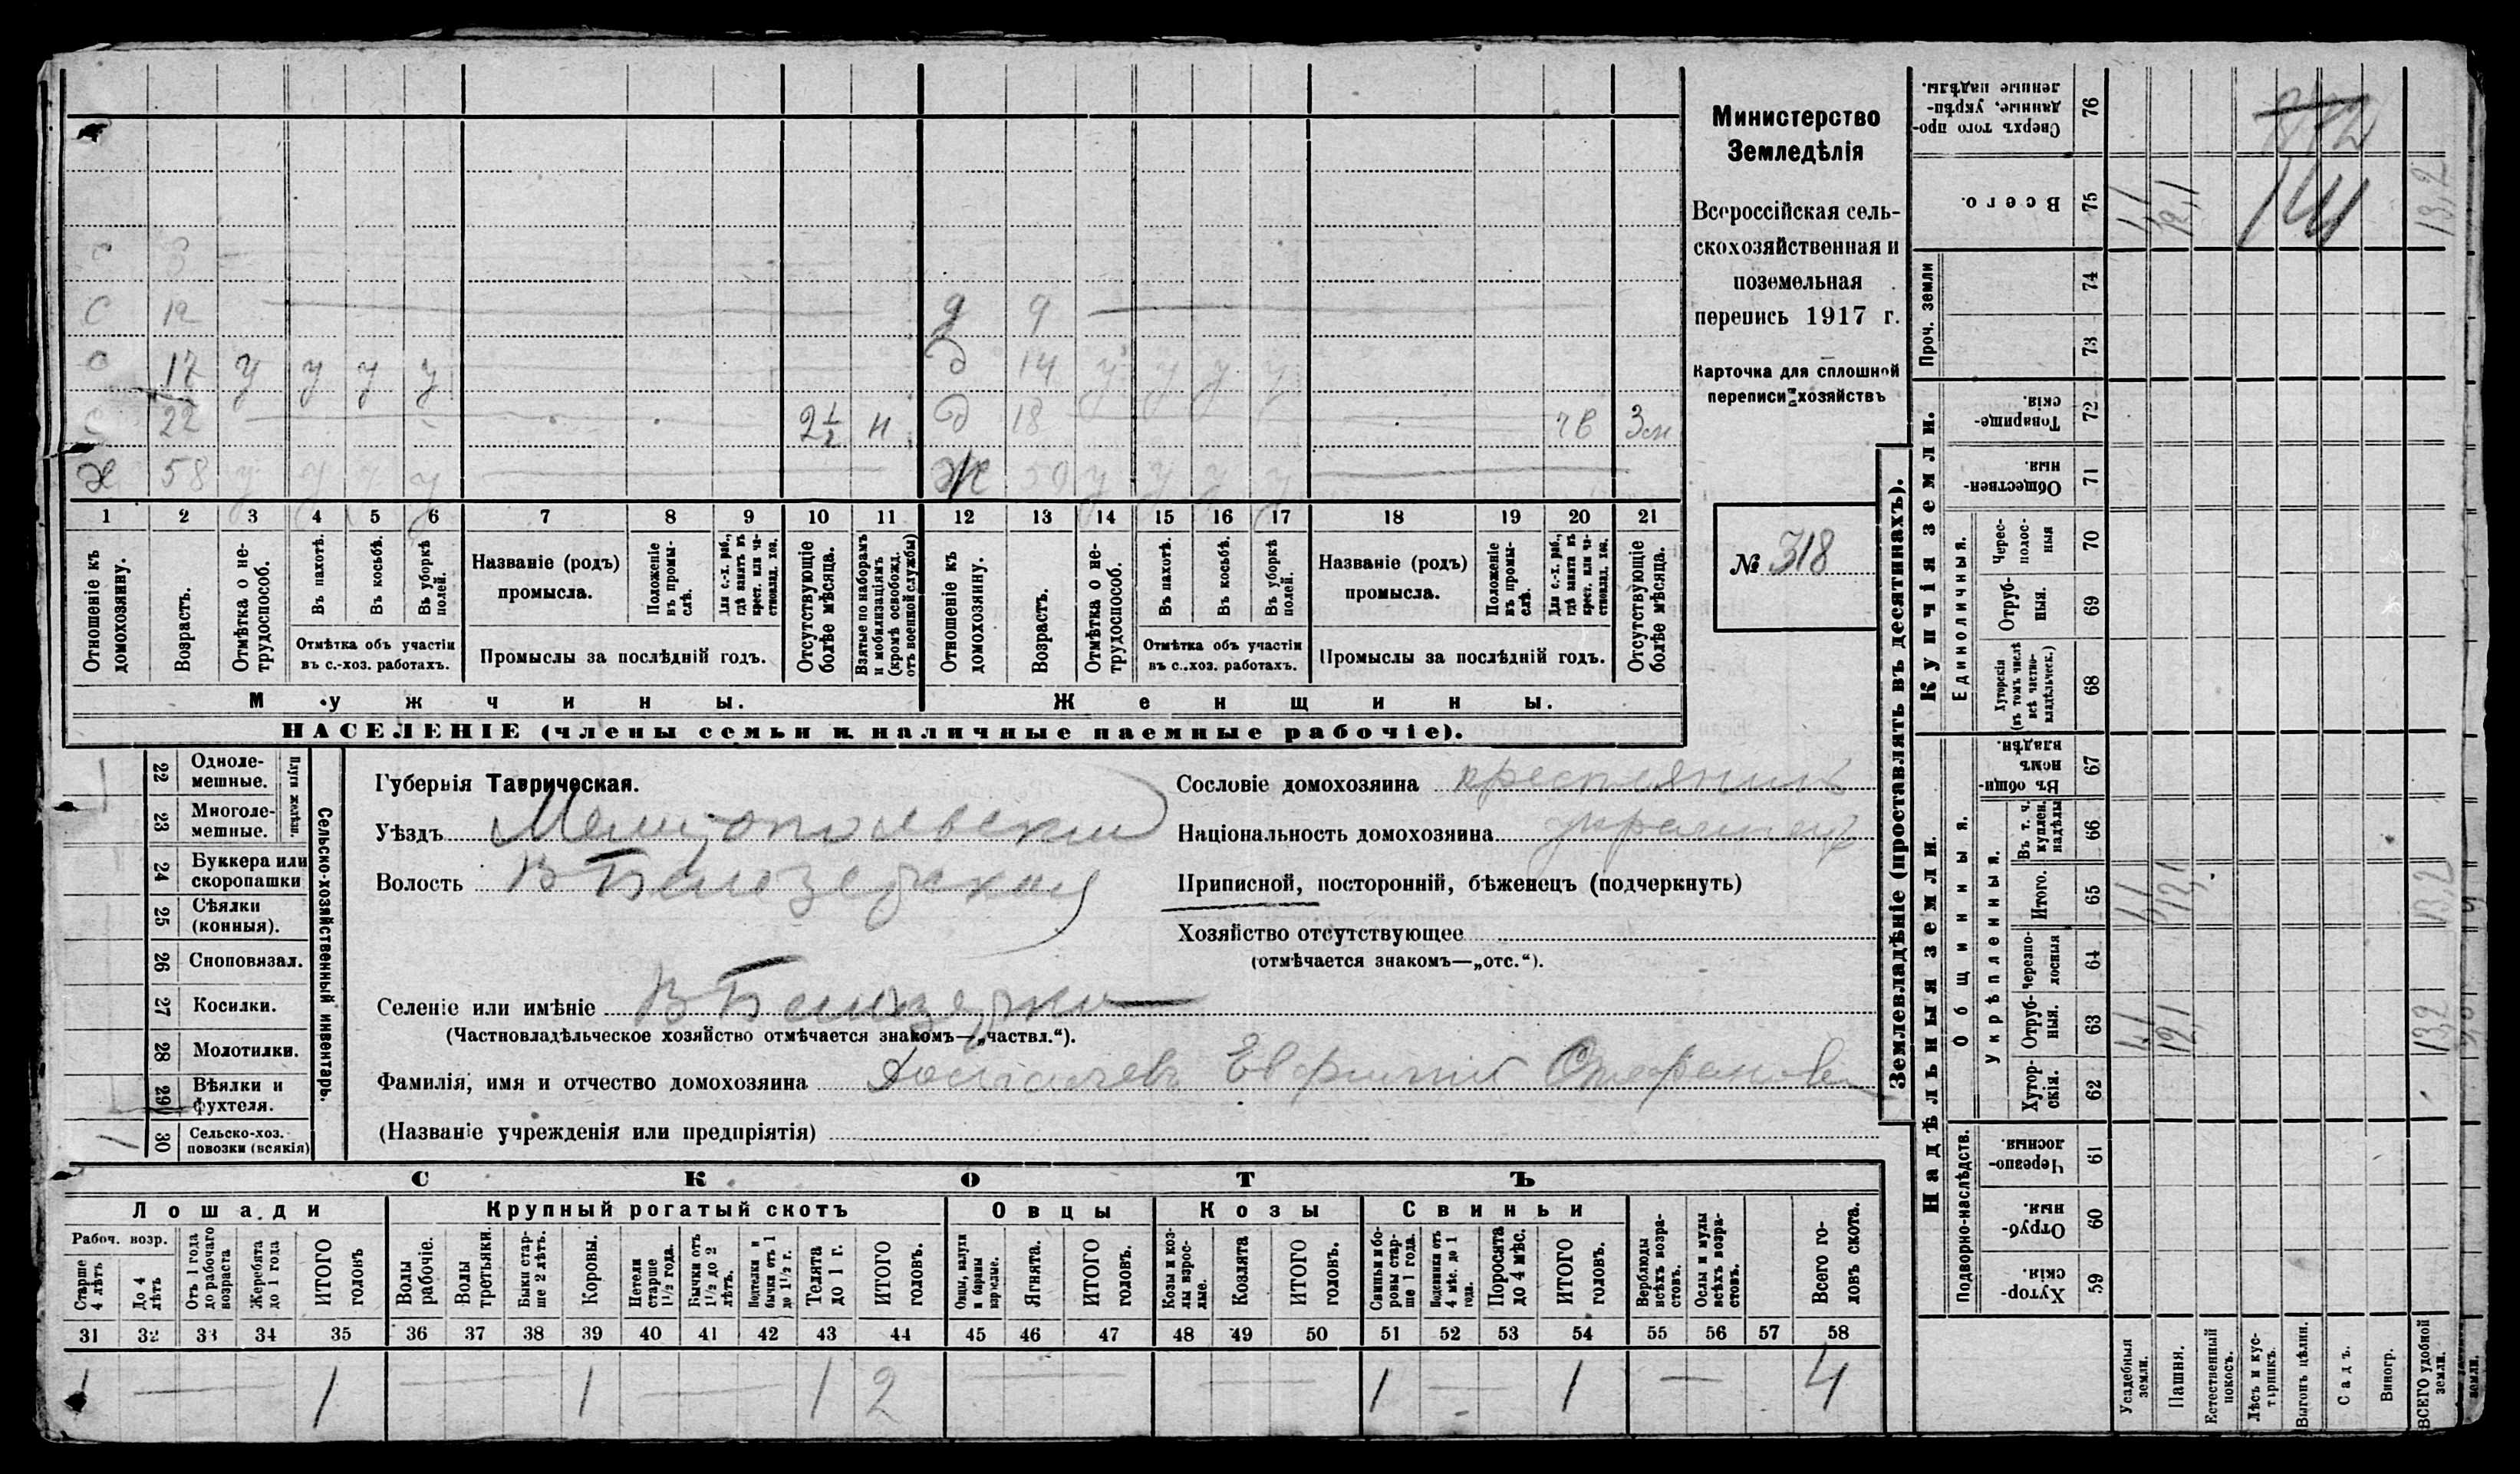 Министерство
Земледѣлія
Всероссійская сель-
скохозяйственная и
поземельная
перепись 1917 г.
Карточка для сплошной
переписи хозяйствъ
№ 318
С 3
С 12 д 9
С 17 у у у у д 14 у у у у
С 22 2½ н д 18 чв 3м
Х 58 у у у у Ж 50 у у у у
1 2 3 4 5 6 7 8 9 10 11 12 13 14 15 16 17 18 19 20 21
Отношеніе къ домохозяину.
Возрастъ.
Отмѣтка о не-трудоспособ.
Въ пахотѣ.
Въ косьбѣ.
Въ уборкѣ полей.
Отмѣтка объ участіи
въ с.-хоз. работахъ.
Названіе (родъ)
промысла.
Положеніе въ промы-слѣ.
Для с.-х. раб., гдѣ занятъ въ крест. или ча-стновлад. хоз.
Промыслы за послѣдній годъ.
Отсутствующіе болѣе мѣсяца.
Взятые по наборамъ и мобилизаціямъ (кромѣ освобожд. отъ военной службы)
Отношеніе къ домохозяину.
Возрастъ.
Отмѣтка о не-трудоспособ.
Въ пахотѣ.
Въ косьбѣ.
Въ уборкѣ полей.
Отмѣтка объ участіи
въ с.-хоз. работахъ.
Названіе (родъ)
промысла.
Положеніе въ промы-слѣ.
Для с.-х. раб., гдѣ занята въ крест. или ча-стновлад. хоз.
Промыслы за послѣдній годъ.
Отсутствующіе болѣе мѣсяца.
Мужчины. Женщины.
НАСЕЛЕНІЕ (члены семьи и наличные наемные рабочіе).
Сельско-хозяйственный инвентарь.
Плуги желѣзн.
22 Одноле-мешные.
23 Многоле-мешные.
24 Буккера или скоропашки
25 Сѣялки (конныя).
26 Сноповязал.
27 Косилки.
28 Молотилки.
29 Вѣялки и фухтеля.
30 Сельско-хоз. повозки (всякія)
Губернія Таврическая.
Уѣздъ Мелитопольскій
Волость В Бѣлозерская
Селеніе или имѣніе В Бѣлозерка
(Частновладѣльческое хозяйство отмѣчается знакомъ—„частвл.“).
Фамилія, имя и отчество домохозяина Евфимій Стефановъ
(Названіе учрежденія или предпріятія)
Сословіе домохозяина крестьянинъ
Національность домохозяина украинецъ
Приписной, посторонній, бѣженецъ (подчеркнуть)
Хозяйство отсутствующее
(отмѣчается знакомъ—„отс.“).
СКОТЪ
Лошади Крупный рогатый скотъ Овцы Козы Свиньи
Рабоч. возр.
Старше 4 лѣтъ
До 4 лѣтъ
Отъ 1 года до рабочаго возраста
Жеребята до 1 года
ИТОГО головъ
Волы рабочіе.
Волы третьяки.
Быки стар-ше 2 лѣтъ.
Коровы.
Нетели старше 1½ года.
Бычки отъ 1½ до 2 лѣтъ.
Подтелки и бычки отъ 1 до 1½ г.
Телята до 1 г.
ИТОГО головъ.
Овцы, валухи и бараны взрослые.
Ягнята.
ИТОГО головъ.
Козы и коз-лы взрос-лые.
Козлята
ИТОГО головъ.
Свиньи и бо-ровы стар-ше 1 года.
Подсвинки отъ 4 мѣс. до 1 года.
Поросята до 4 мѣс.
ИТОГО головъ.
Верблюды всѣхъ возра-стовъ.
Ослы и мулы всѣхъ возра-стовъ.
Всего го-ловъ скота.
31 32 33 34 35 36 37 38 39 40 41 42 43 44 45 46 47 48 49 50 51 52 53 54 55 56 57 58
1 — 1 — 1 — 1 2 — — 1 — 1 — 4
Землевладѣніе (проставлять въ десятинахъ).
Надѣльныя земли.
Подворно-наслѣдств.
Хутор-скія. 59
Отруб-ныя. 60
Черезпо-лосныя 61
Общинныя.
Укрѣпленныя.
Хутор-скія. 62
Отруб-ныя. 63
Черезпо-лосныя 64
Итого. 65
Въ т. ч. куплен. надѣлы 66
Въ общи-номъ владѣн. 67
Купчія земли.
Единоличныя.
Хуторскія (въ томъ числѣ всѣ частно-владѣльческ.) 68
Отруб-ныя. 69
Черес-полос-ныя 70
Обществен-ныя. 71
Товарище-скія. 72
Проч. земли
73
74
Всего. 75
Сверхъ того про-данные, укрѣп-ленные надѣлы. 76
Усадебныя земли.
Пашня.
Естественный покосъ.
Лѣсъ и кус-тарникъ.
Выгонъ цѣлин.
Садъ.
Виногр.
ВСЕГО удобной земли.
1,1 12,1 13,2
1,1 12,1 13,2
1,1 12,1 13,2